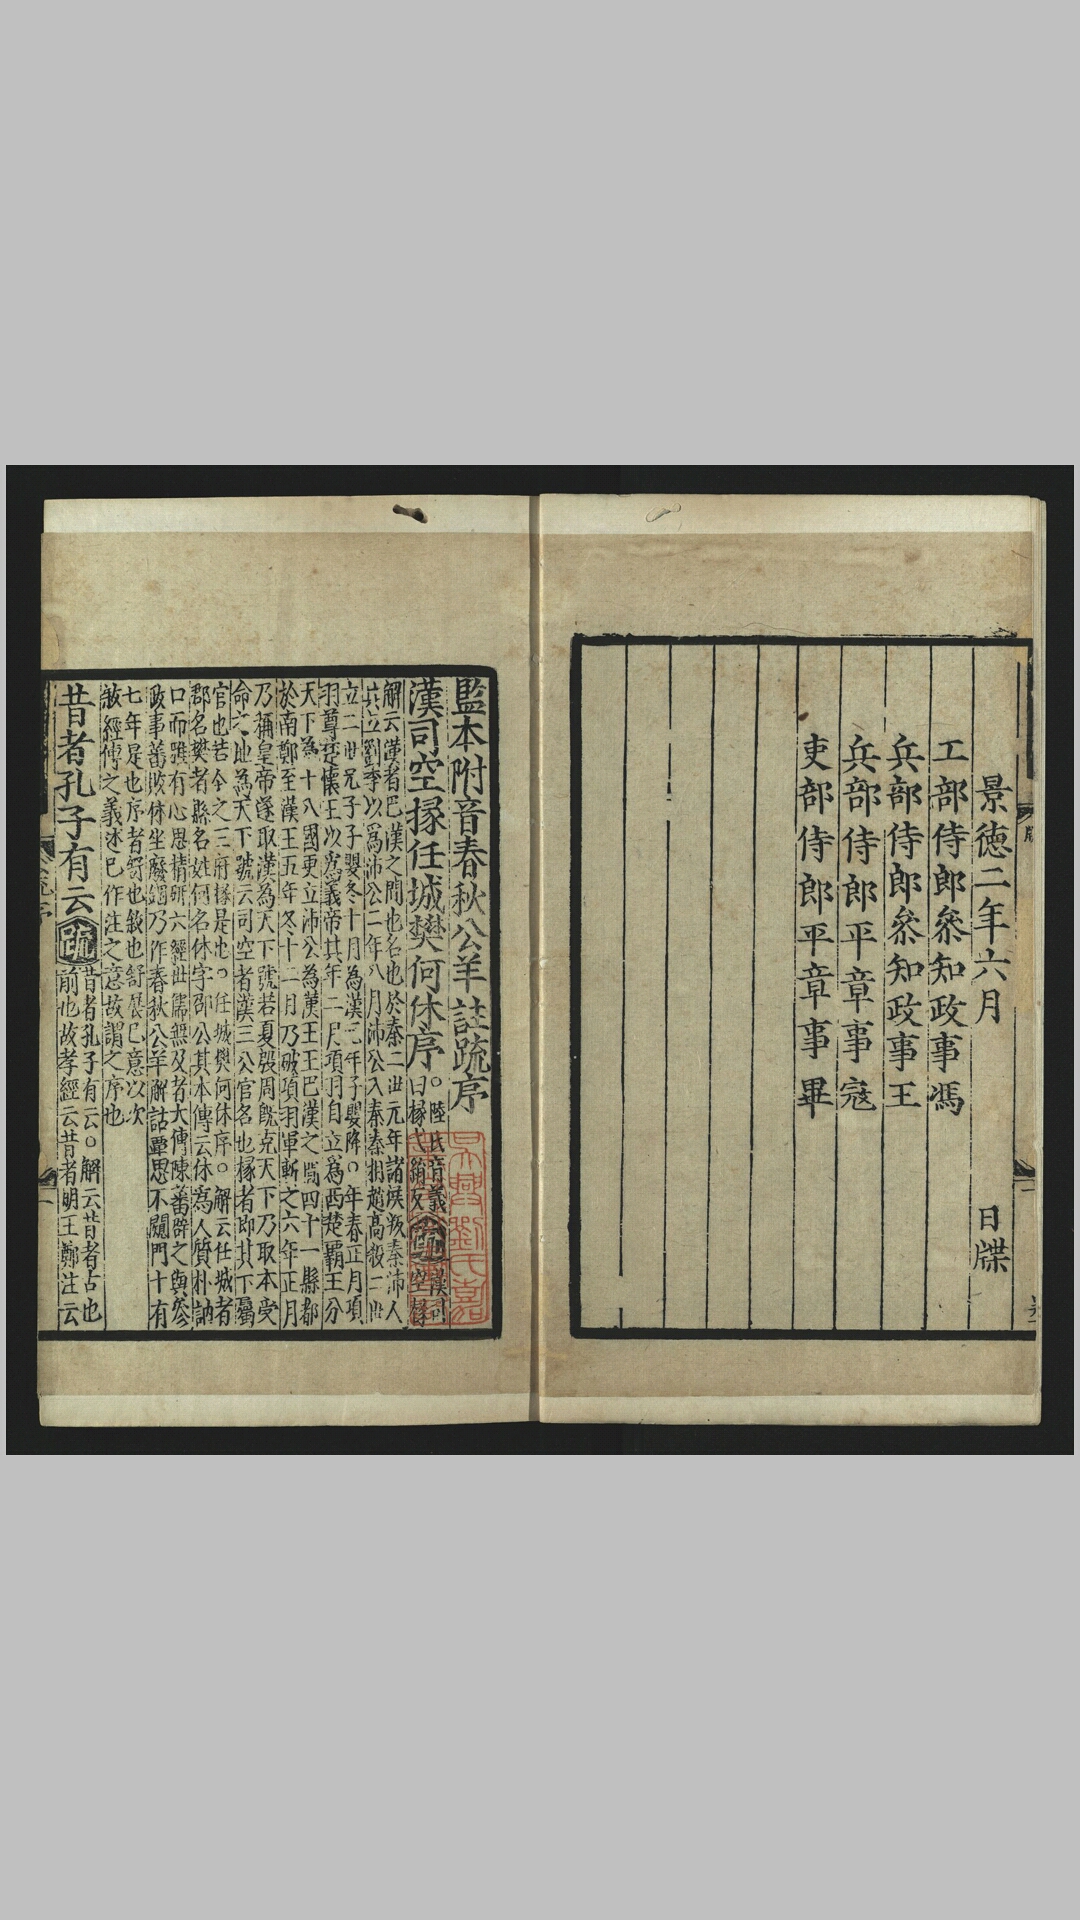 景德二年六月　日牒
工部侍郎叅知政事馮
兵部侍郎叅知政事王
兵部侍郎平章事寇
吏部侍郎平章事畢
監本附音春秋公羊註䟽序
漢司空掾任城樊何休序
○陸氏音義
曰掾弋絹反䟽漢司空掾
解云漢者巴漢之間地名也於秦二世元年諸侯叛秦沛人
共立劉季以爲沛公二年八月沛公入秦秦相趙高殺二世
立二世兄子子嬰冬十月爲漢元年子嬰降○年春正月項
羽尊楚懷王以爲義帝其年二月項羽自立爲西楚覇王分
天下為十八國更立沛公為漢王王巴漢之間四十一縣都
於南鄭至漢王五年冬十二月乃破項羽軍斬之六年正月
乃稱皇帝遂取漢為天下號若夏殷周旣克天下乃取本受
命之地為天下號云司空者漢三公官名也掾者即其下屬
官也若今之三府掾是也○任城樊何休序○解云任城者
郡名樊者縣名姓何名休字邵公其本傳云休爲人質朴訥
口而雅有心思精研六經世儒無及者大傅陳蕃辟之與叅
政事蕃敗休坐廢錮乃作春秋公羊解詁覃思不闚門十有
七年是也序者舒也敘也舒展己意以次
敘經傳之義述己作注之意故謂之序也
昔者孔子有云䟽
昔者孔子有云○解云昔者古也
前也故孝經云昔者明王鄭注云